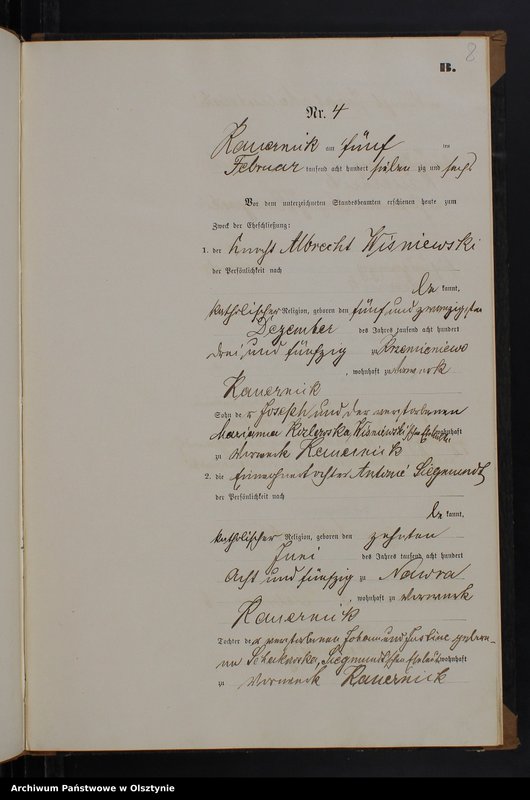 8
B.
Nr. 4
Kauernick am fünf ten
Februar tausend acht hundert sieben zig und sechs
Vor dem unterzeichneten Standesbeamten erschienen heute zum
Zweck der Eheschließung:
1. der Knecht Albrecht Wiśniewski
der Persönlichkeit nach
be kannt,
katholischer Religion, geboren den fünf und zwanzigsten
Dezember des Jahres tausend acht hundert
drei und fünfzig zu Krzemieniewo
, wohnhaft zu Vorwerk
Kauernick
Sohn de s Joseph und der verstorbenen
Marianna Wiśniewski'schen Eheleute wohnhaft
zu Vorwerk Kauernick
2. die Einwohnertochter Antonie Siegmundt
der Persönlichkeit nach
be kannt,
katholischer Religion, geboren den zehnten
Juni des Jahres tausend acht hundert
Acht und fünfzig zu Nawra
, wohnhaft zu Vorwerk
Kauernick
Tochter de r verstorbenen Johann und Justine gebore-
ne Siegmundt'schen Eheleute wohnhaft
zu Vorwerk Kauernick
Archiwum Państwowe w Olsztynie